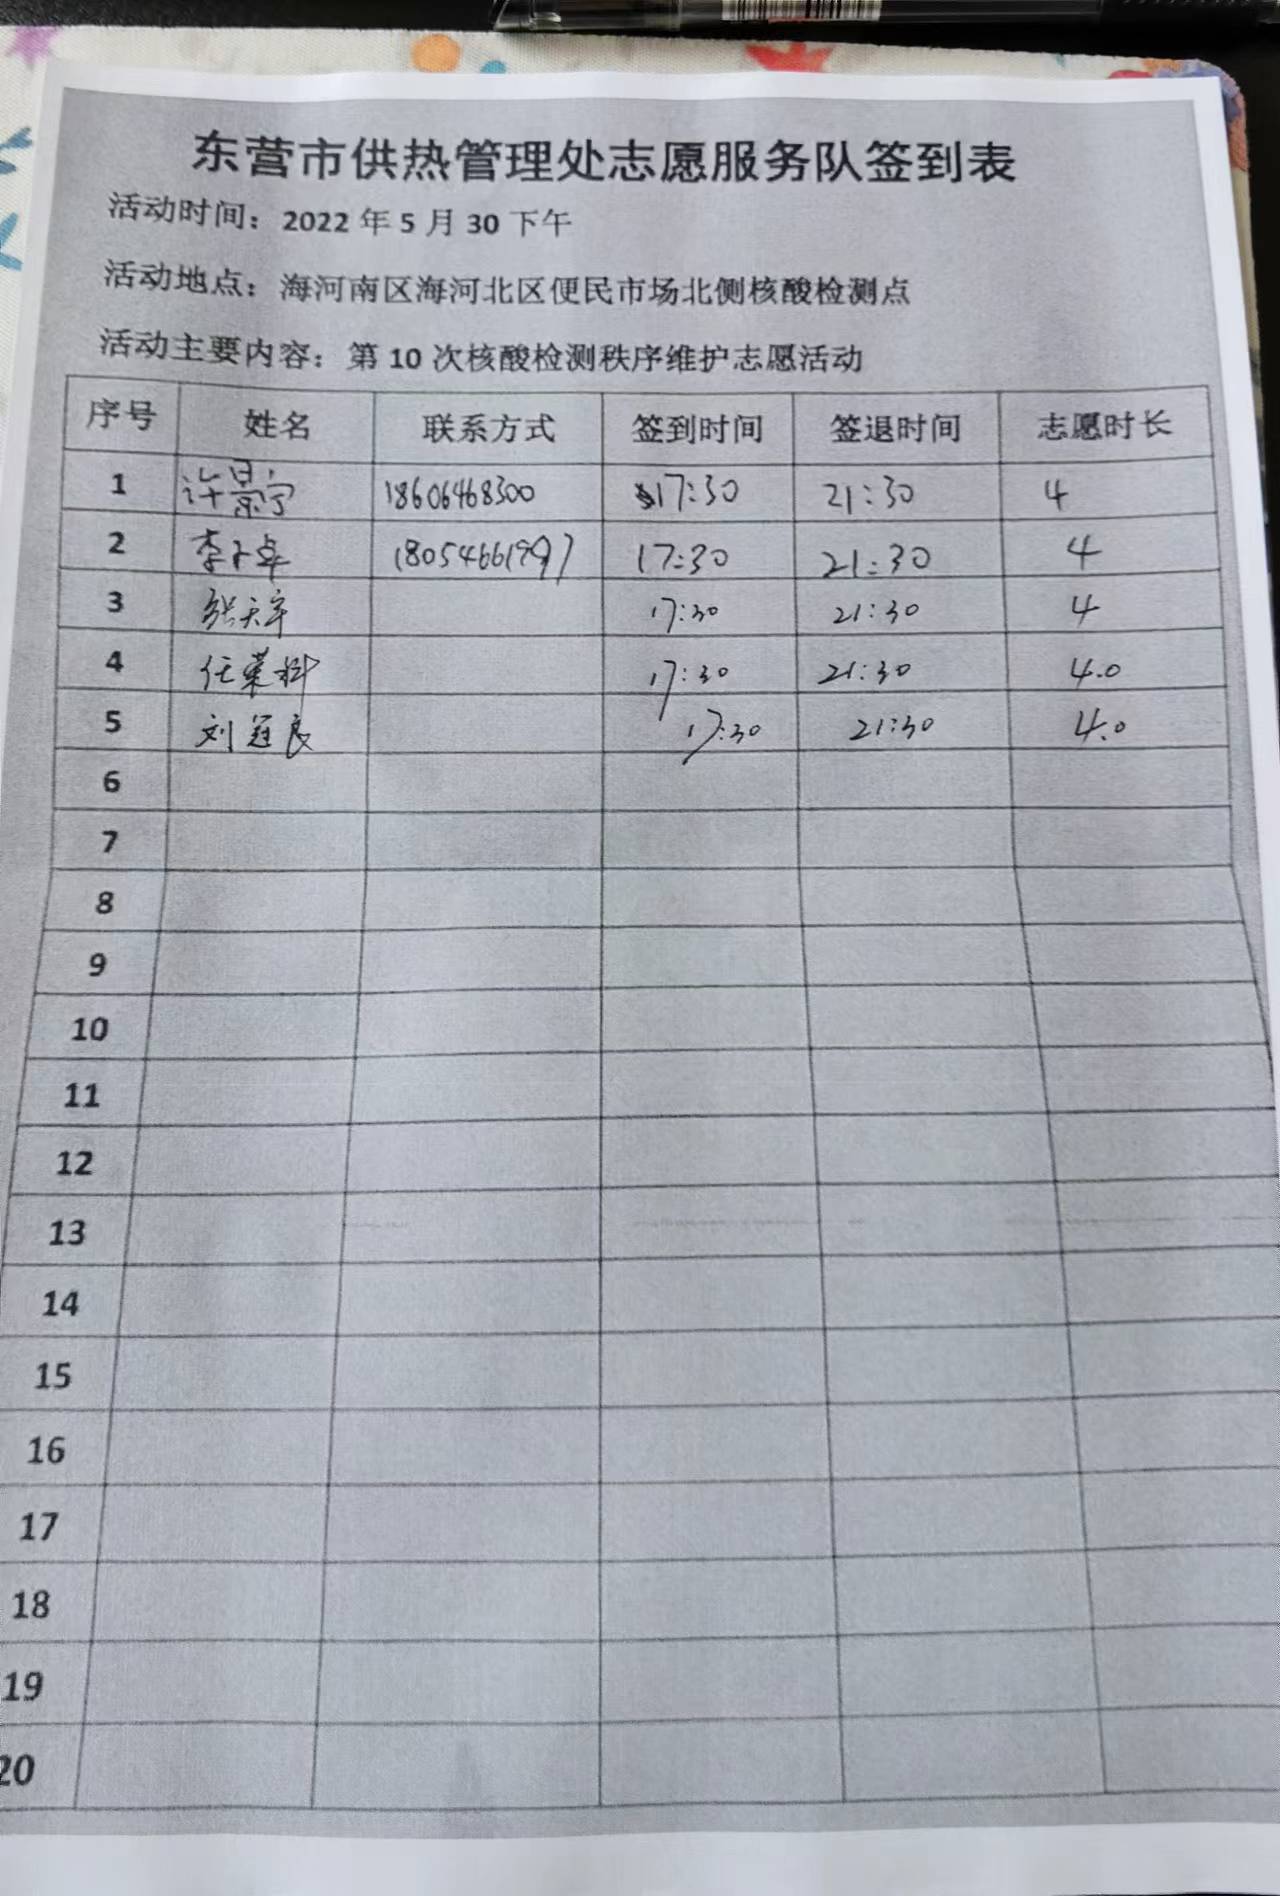 东营市供热管理处志愿服务队签到表
活动时间：2022 年 5 月 30 下午
活动地点：海河南区海河北区便民市场北侧核酸检测点
活动主要内容：第 10 次核酸检测秩序维护志愿活动
序号 姓名 联系方式 签到时间 签退时间 志愿时长
1 许景宁 18606468300 17:30 21:30 4
2 李子卓 17:30 21:30 4
3 张天宇 17:30 21:30 4
4 任荣科 17:30 21:30 4.0
5 刘冠良 17:30 21:30 4.0
6
7
8
9
10
11
12
13
14
15
16
17
18
19
20